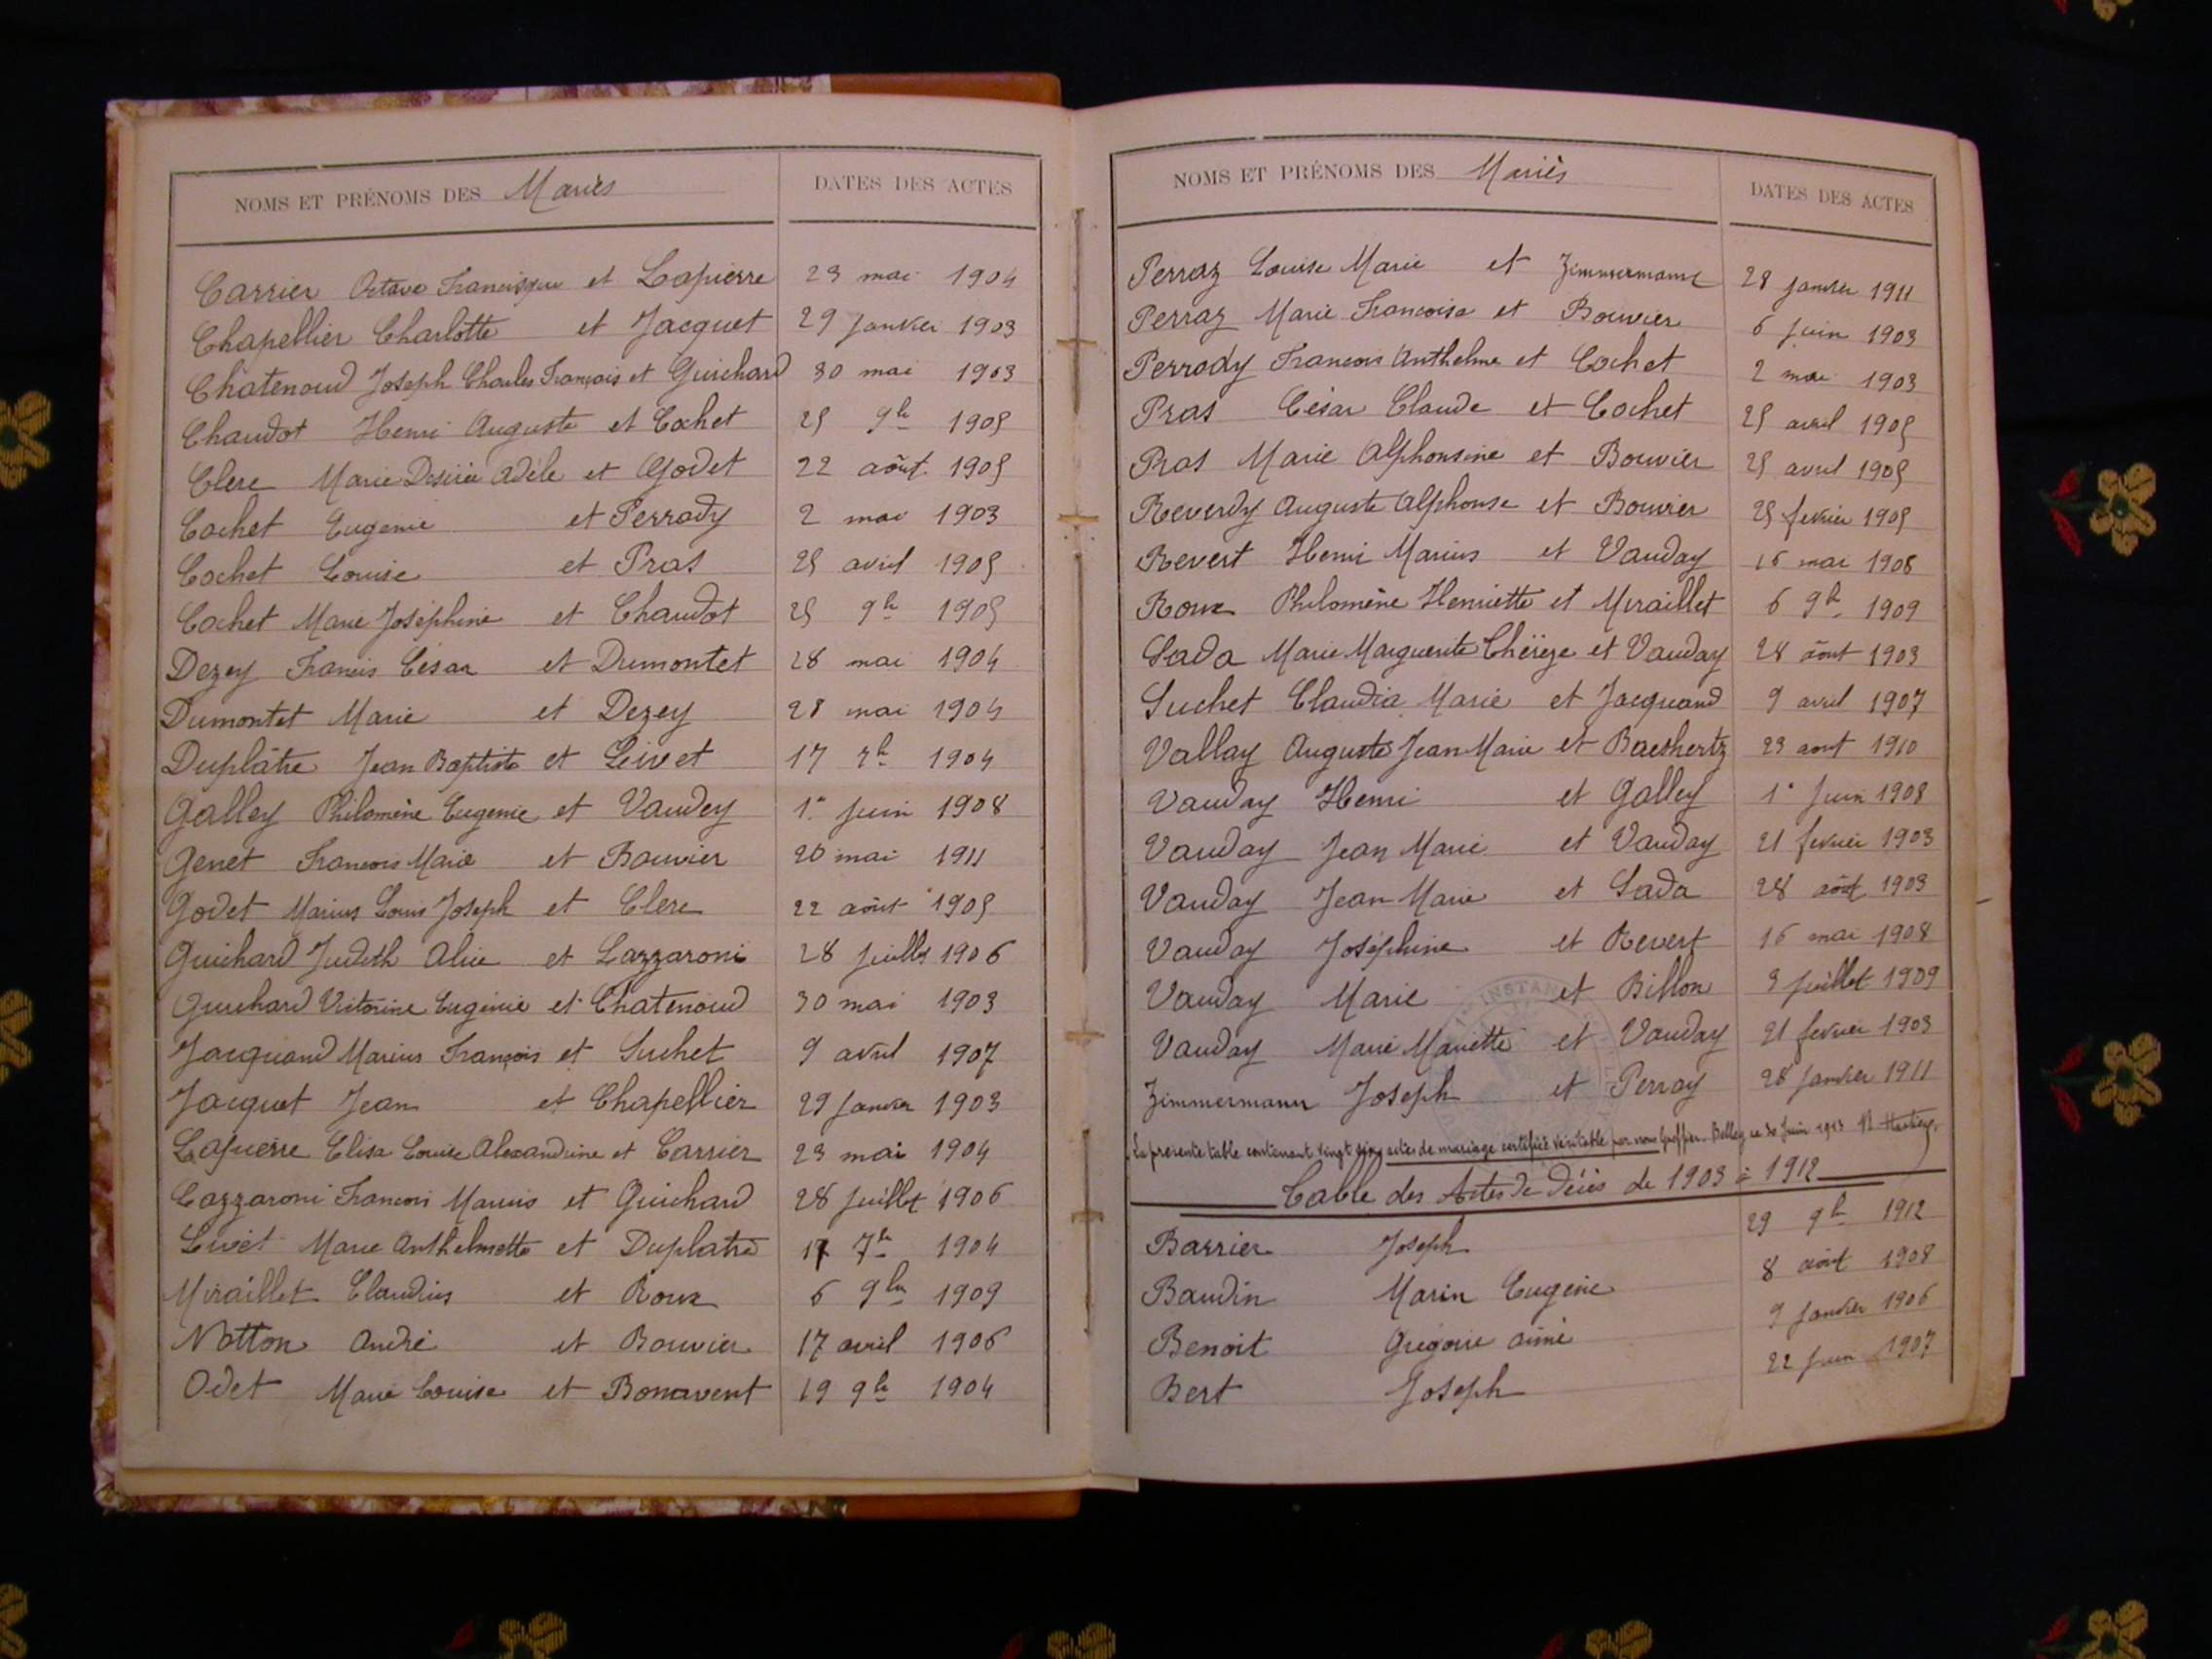 NOMS ET PRÉNOMS DES Mariés
DATES DES ACTES
Carrier Octave Francisque et Lapierre 23 mai 1904
Chapellier Charlotte et Jacquet 29 Janvier 1903
Chatenoud Joseph Charles François et Guichard 30 mai 1903
Chaudot Henri Auguste et Cochet 25 9bre 1905
Clerc Marie Desirée Adèle et Godet 22 août 1905
Cochet Eugenie et Perrody 2 mai 1903
Cochet Louise et Pras 25 avril 1905
Cochet Marie Joséphine et Chaudot 25 9bre 1905
Dezey Francis César et Dumontet 28 mai 1904
Dumontet Marie et Dezey 28 mai 1904
Duplâtre Jean Baptiste et Livet 17 7bre 1904
Galley Philomène Eugenie et Vaudey 1er Juin 1908
Genet François Marie et Bouvier 20 mai 1911
Godet Marius Louis Joseph et Clerc 22 août 1905
Guichard Judith Alice et Lazzaroni 28 Juillet 1906
Guichard Victorine Eugénie et Chatenoud 30 mai 1903
Jacquand Marius François et Suchet 9 avril 1907
Jacquet Jean et Chapellier 29 Janvier 1903
Lapierre Elisa Louise Alexandrine et Carrier 23 mai 1904
Lazzaroni François Marius et Guichard 28 Juillet 1906
Livet Marie Anthelmette et Duplatre 17 7bre 1904
Miraillet Claudius et Roux 6 9bre 1909
Notton André et Bouvier 17 avril 1906
Odet Marie Louise et Bonnavent 19 9bre 1904
NOMS ET PRÉNOMS DES Mariés
DATES DES ACTES
Perraz Louise Marie et Zimmermann 28 Janvier 1911
Perraz Marie Françoise et Bouvier 6 Juin 1903
Perrody François Anthelme et Cochet 2 mai 1903
Pras César Claude et Cochet 25 avril 1905
Pras Marie Alphonsine et Bouvier 25 avril 1905
Reverdy Auguste Alphonse et Bouvier 25 fevrier 1905
Revert Henri Marius et Vauday 16 mai 1908
Roux Philomène Henriette et Miraillet 6 9bre 1909
Sada Marie Marguerite Thérèze et Vauday 28 août 1903
Suchet Claudia Marie et Jacquand 9 avril 1907
Vallay Auguste Jean Marie et Baeshertz 23 aout 1910
Vauday Henri et Galley 1er Juin 1908
Vauday Jean Marie et Vauday 21 fevrier 1903
Vauday Jean Marie et Sada 28 août 1903
Vauday Joséphine et Revert 16 mai 1908
Vauday Marie et Billon 3 Juillet 1909
Vauday Marie Mariette et Vauday 21 fevrier 1903
Zimmermann Joseph et Perray 28 Janvier 1911
La presente table contenant vingt six actes de mariage certifiée véritable par nous Greffier. Belley ce 30 Juin 1913
Table des Actes de Décès de 1903 à 1912
Barrier Joseph 29 9bre 1912
Baudin Marin Eugène 8 août 1908
Benoit Grégoire aimé 9 Janvier 1906
Bert Joseph 22 Juin 1907